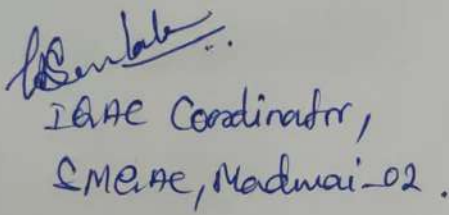 IQAC Coordinator,
SMQAC, Madurai-02.